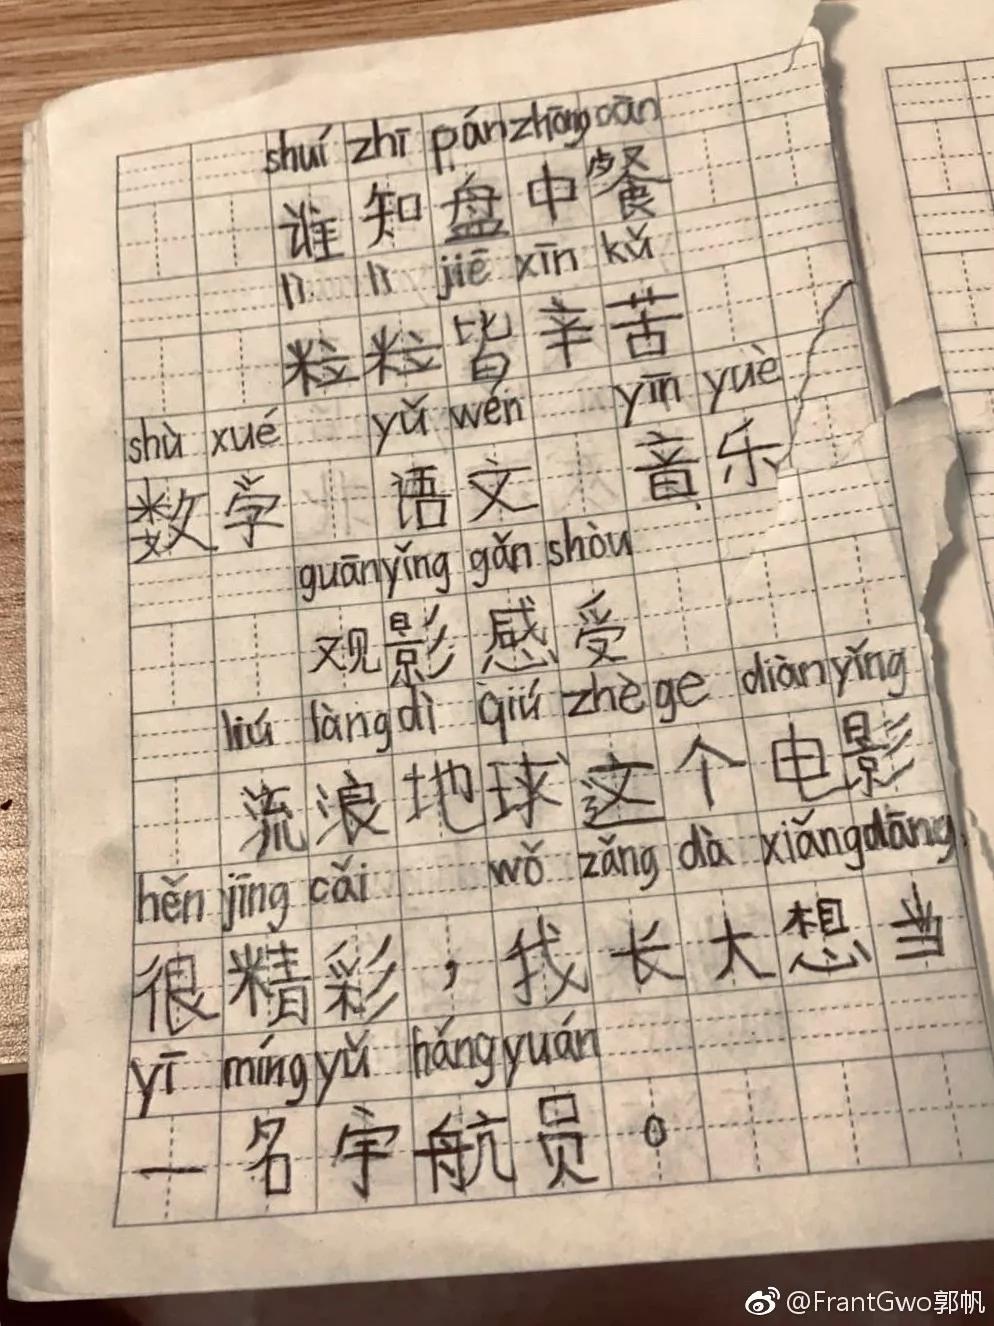 shuí zhī pán zhōng cān
谁知盘中餐
lì lì jiē xīn kǔ
粒粒皆辛苦
shù xué yǔ wén yīn yuè
数学 语文 音乐
guān yǐng gǎn shòu
观影感受
liú làng dì qiú zhè ge diàn yǐng
流浪地球这个电影
hěn jīng cǎi wǒ zǎng dà xiǎng dāng
很精彩，我长大想当
yī míng yǔ háng yuán
一名宇航员。
@FrantGwo郭帆